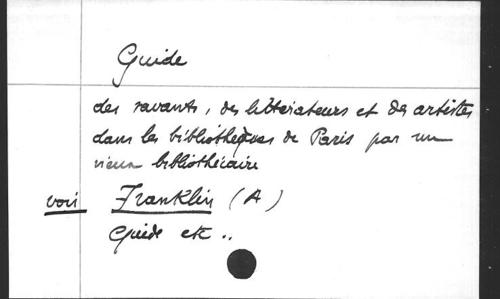 Guide
des savants, des littérateurs et des artistes
dans les bibliothèques de Paris par un
vieux bibliothécaire
voir Franklin (A)
Guide etc ..